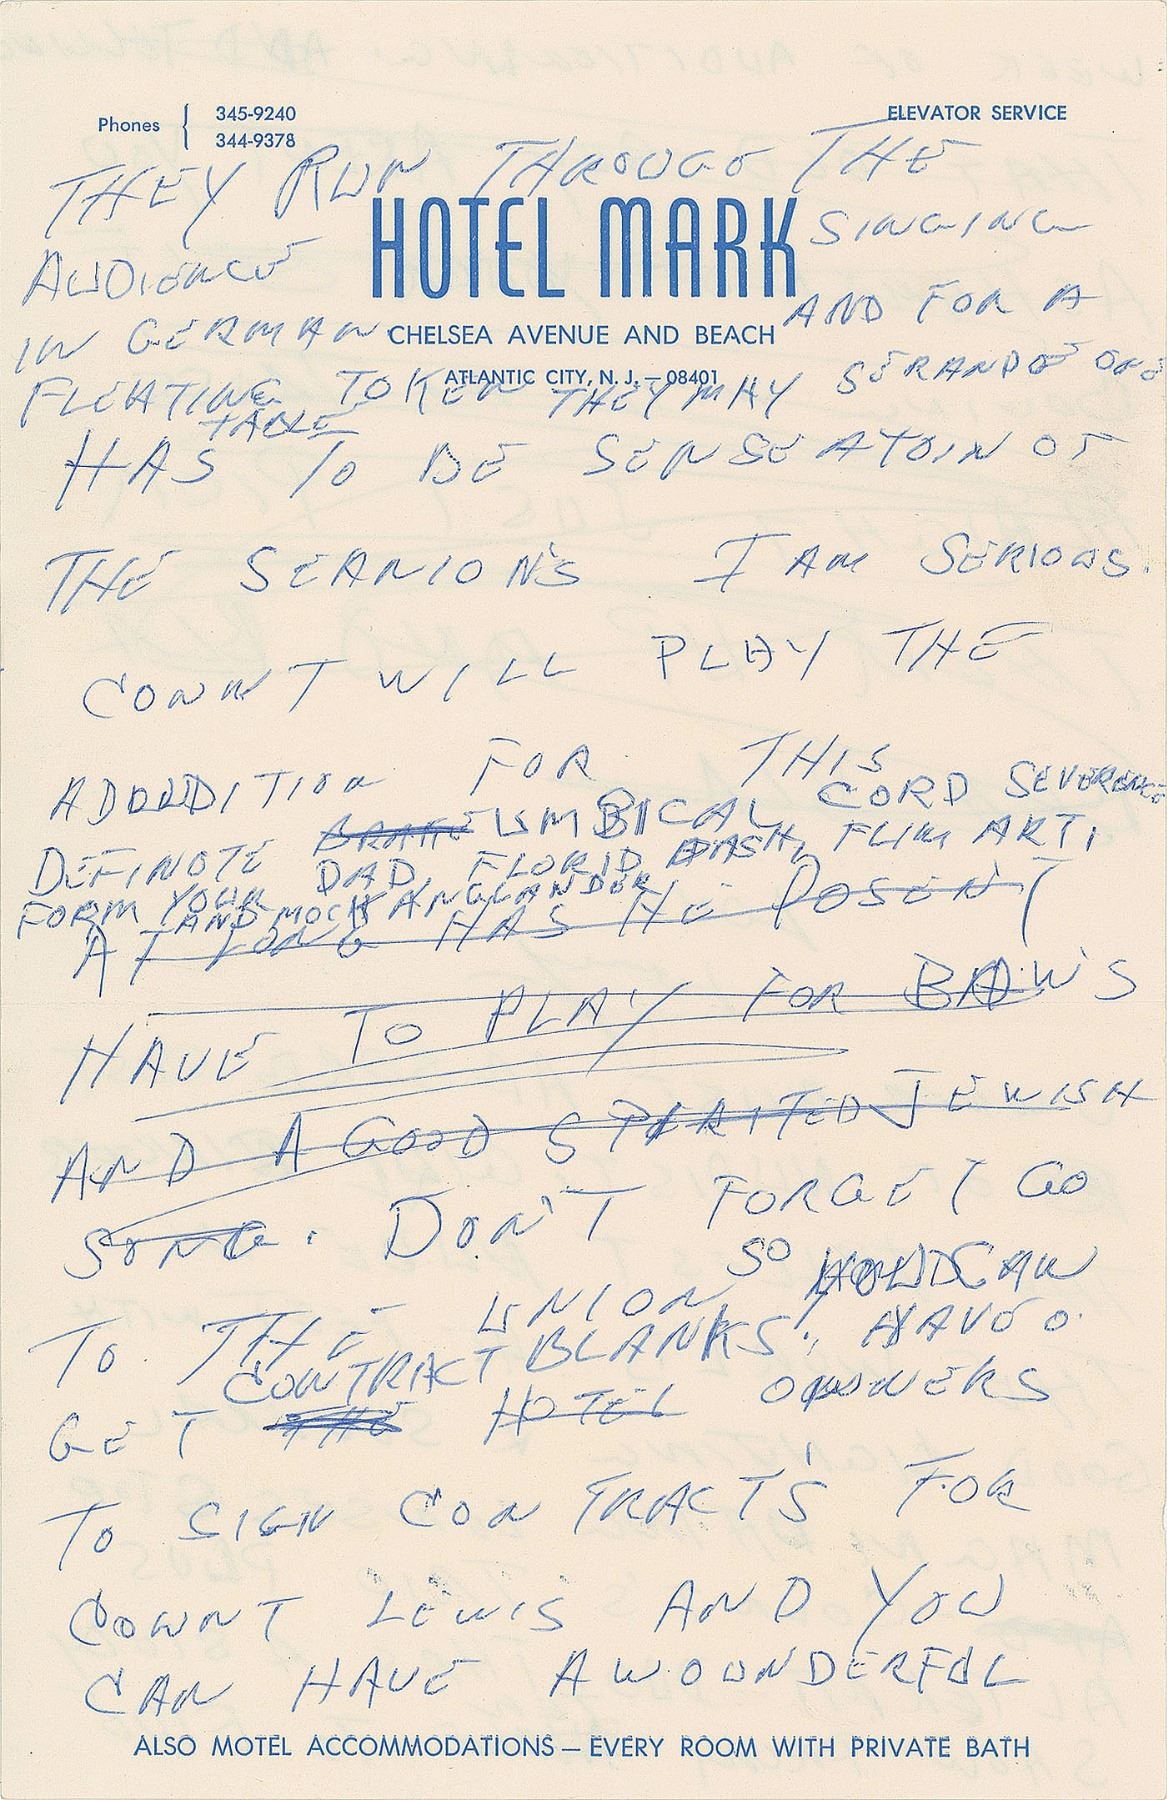 Phones { 345-9240
344-9378
ELEVATOR SERVICE
THEY RUN THROUGO THE
HOTEL MARK
AUDIENCE SINGING
IN GERMAN AND FOR A
CHELSEA AVENUE AND BEACH
ATLANTIC CITY, N. J. — 08401
FLEATING TOKEN THEY MAY SERANDE ONE
TABLE
HAS TO BE SENSEATOIN OF
THE SEANIONS I AM SERIOUS.
COWNT WILL PLAY THE
ADDDDITION FOR THIS
DEFINOTE UMBICAL CORD SEVERENCE
FORM YOUR DAD, FLORID DASH, FLIM ARTI
AND MOCK ANGLANDER
AT LONG HAS HE DOSEN'T
HAVE TO PLAY FOR BAWS
AND A GOOD SPARITED JEWISH
SONG. DON'T FORGET GO
TO THE UNION SO CAN
CONTRACT BLANKS, HAVE
GET THE HOTEL OWNERS
TO SIGN CONTRACT'S FOR
COWNT LEWIS AND YOU
CAN HAVE A WOUNDERFUL
ALSO MOTEL ACCOMMODATIONS — EVERY ROOM WITH PRIVATE BATH